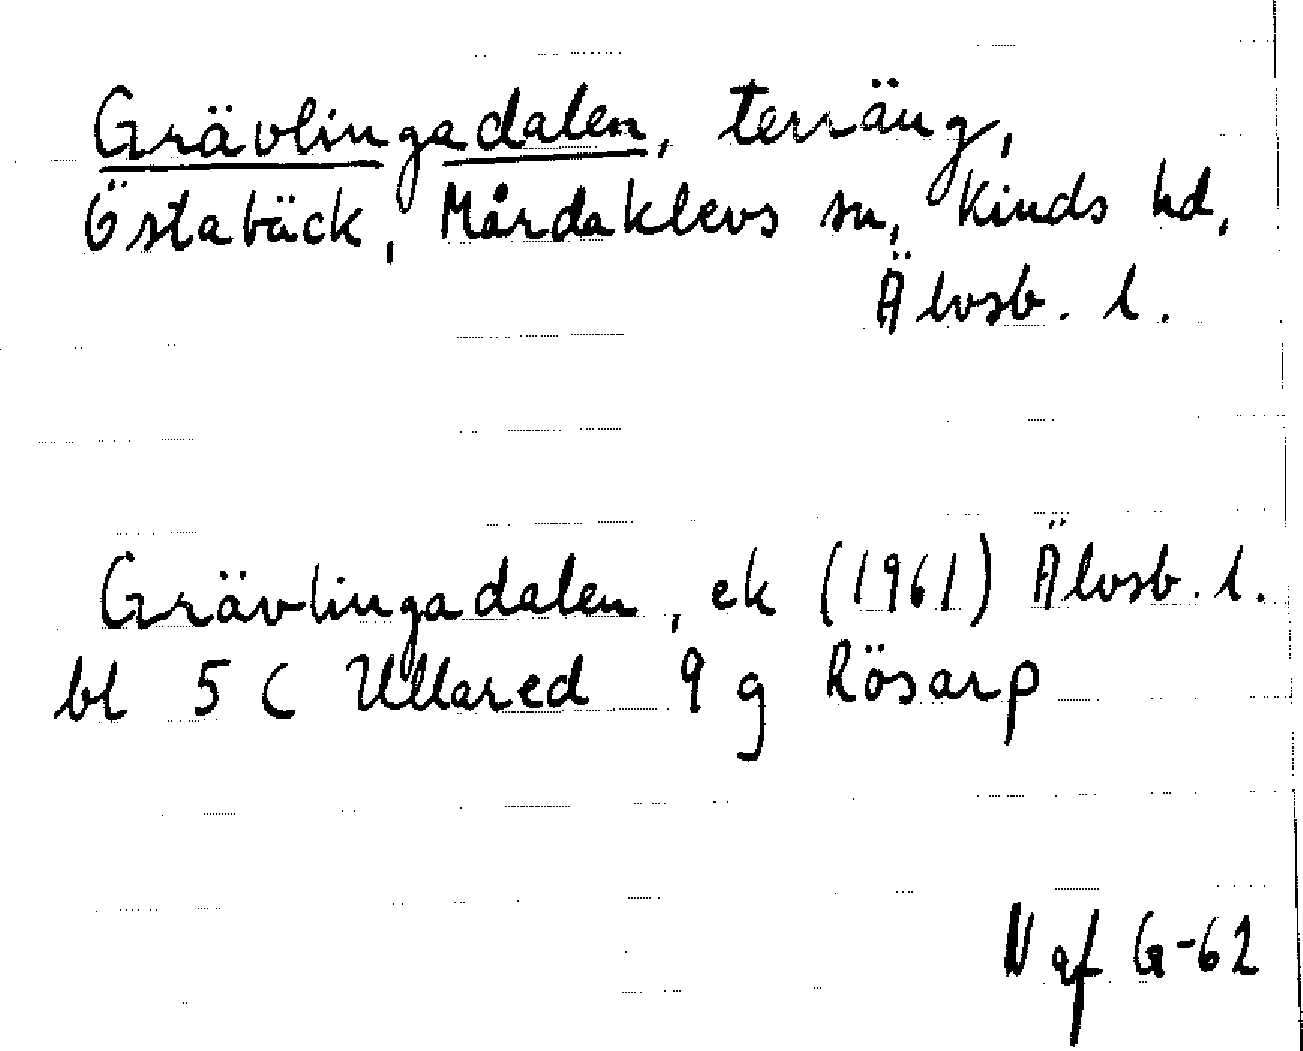 Grävlingadalen, terräng,
Östabäck, Mårdaklevs sn, Kinds hd,
Älvsb. l.
Grävlingadalen, ek (1961) Älvsb. l.
bl 5 C Ullared 9 g Rösarp
N af G-62